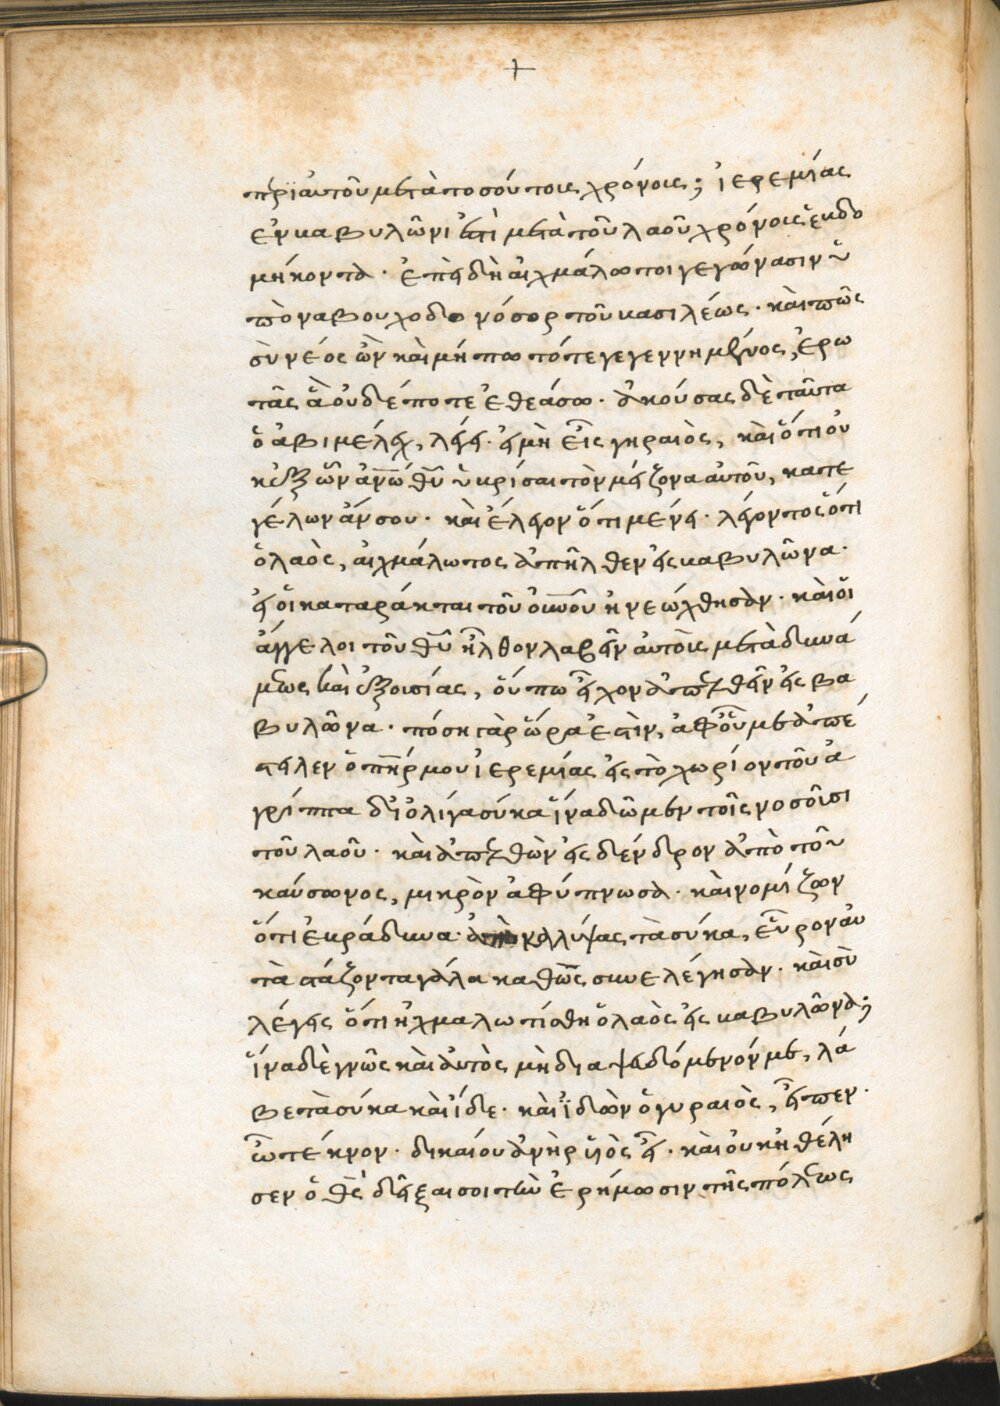 +
πρὶ αὐτοῦ μετὰ τοσούτοις χρόνοις; ἰερεμίας
ἐν βαβυλῶνι ἐστὶ μετὰ τοῦ λαοῦ χρόνοις ἑβδο
μήκοντα· ἐπειδὴ αἰχμάλωτοι γεγόνασιν ὑ
πὸ ναβουχοδονόσορ τοῦ βασιλέως· καὶ πῶς
σὺ νέος ὢν καὶ μήπω τότε γεγεννημένος, ἐρω
τᾶς ἃ οὐδέποτε ἐθεάσω· ἀκούσας δὲ ταῦτα
ὁ ἀβιμέλεχ, λέγει· εἰ μὴ εἶς γηραιὸς, καὶ ὅτι οὐ
κ ἐξὸν ἀνῶ θῦ ὑβρίσαι τὸν μείζονα αὐτοῦ, κατε
γέλων ἄν σου· καὶ ἔλεγον ὅτι μένει· λέγοντος ὅτι
ὁ λαὸς, αἰχμάλωτος ἀπῆλθεν εἰς βαβυλῶνα·
εἰ οἱ καταράκται τοῦ οὐνοῦ ἠνεώχθησαν· καὶ οἱ
ἄγγελοι τοῦ θῦ ἦλθον λαβεῖν αὐτοὺς μετὰ δυνά
μεως καὶ ἐξουσίας, οὔπω εἶχον ἀπελθεῖν εἰς βα
βυλῶνα· πόση γὰρ ὥρα ἐστὶν, ἀφοῦ με ἀπέ
στειλεν ὁ πηρ μου ἰερεμίας εἰς τὸ χωρίον τοῦ ἀ
γρίππα δι ὀλίγα σύκα ἵνα δῶμεν τοῖς νοσοῦσι
τοῦ λαοῦ· καὶ ἀπελθὼν εἰς δένδρον ἀπὸ τοῦ
καύσωνος, μικρὸν ἀφύπνωσα· καὶ νομίζων
ὅτι ἐβράδυνα· καλύψας τὰ σύκα, εὗρον αὐ
τὰ στάζοντα γάλα καθὼς συνελέγησαν· καὶ σὺ
λέγεις ὅτι ἠχμαλωτίσθη ὁ λαὸς εἰς βαβυλῶνα;
ἵνα δὲ γνῶς καὶ αὐτὸς μὴ διαψευδόμενόν με, λά
βε τὰ σύκα καὶ ἴδε· καὶ ἰδὼν ὁ γυραιὸς, εἶπεν·
ὦ τέκνον· δικαίου ἀνὴρ ὑιὸς εἶ· καὶ οὐκ ἠθέλη
σεν ὁ θς δεῖξαι σοι τὴν ἐρήμωσιν τῆς πόλεως